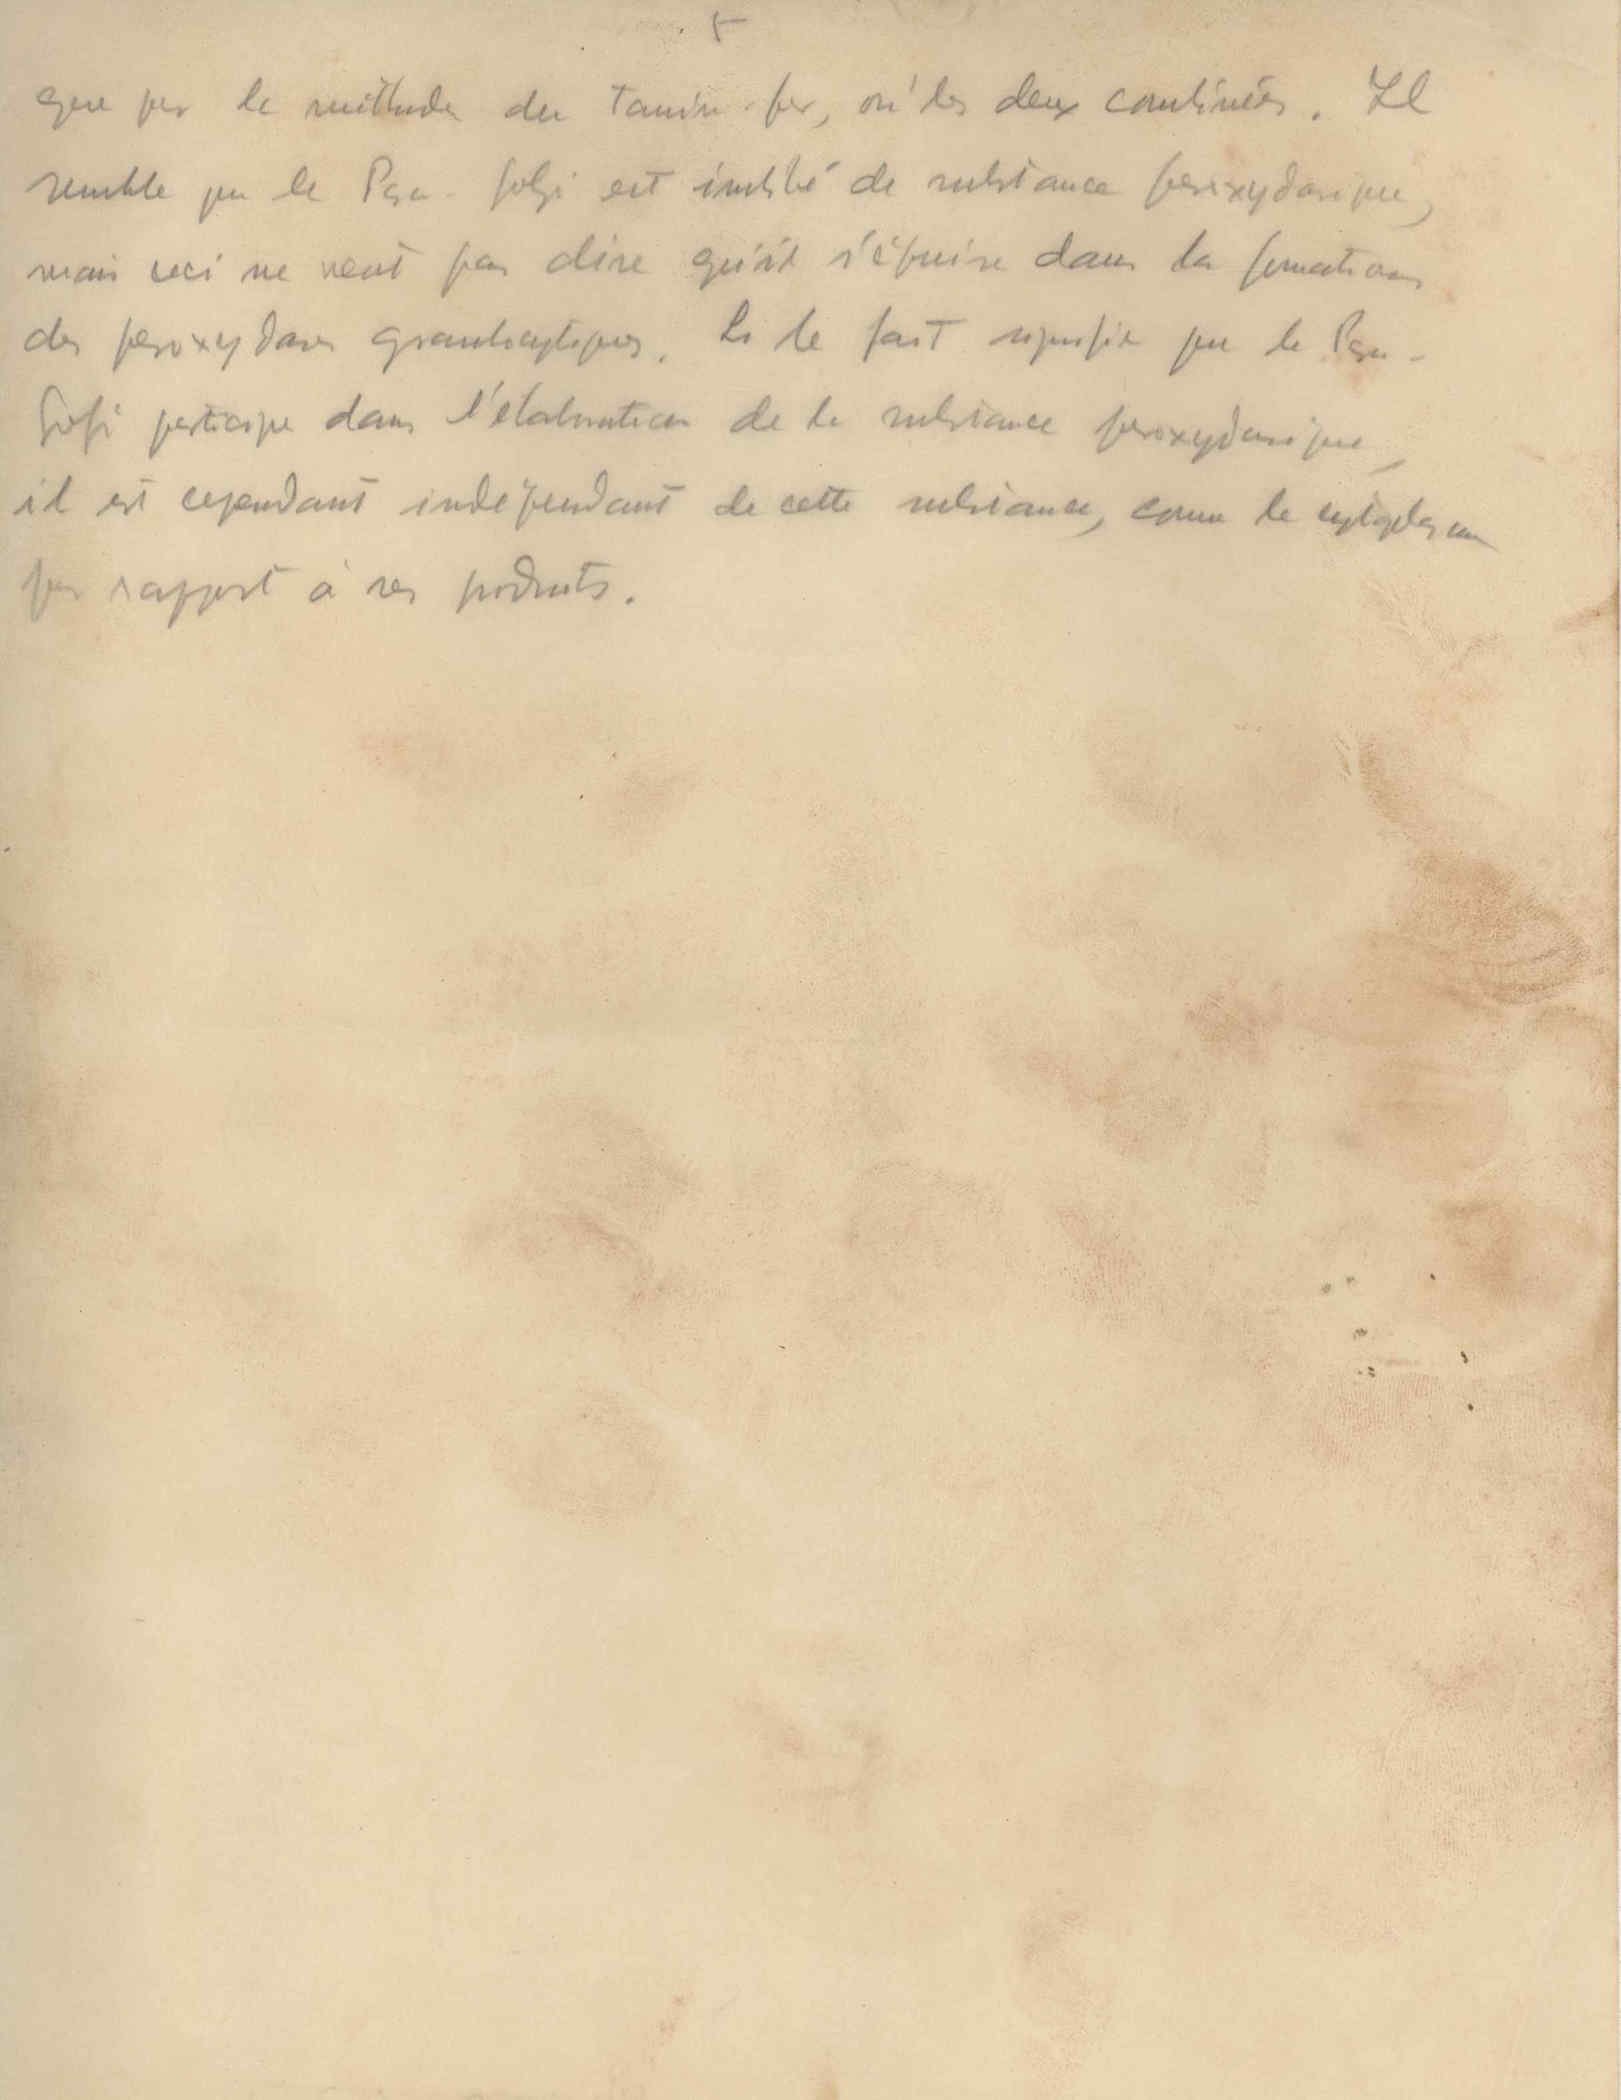 5
que par la méthode du Tanin-fer, où les deux combinées. Il
semble que le Para-Golgi est imbibé de substance peroxydasique,
mais ceci ne veut pas dire qu'il s'épuise dans la formation
des peroxydases granulocytiques. Si le fait signifie que le Para-
Golgi participe dans l'élaboration de la substance peroxydasique,
il est cependant indépendant de cette substance, comme le cytoplasme
par rapport à ses produits.